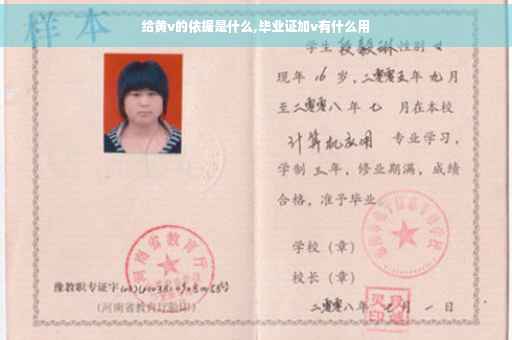 给黄v的依据是什么,毕业证加v有什么用
样本
学生 段毅琳 性别 女
现年 16 岁，二零零五年 九 月
至二零零八年 七 月在本校
计算机应用 专业学习，
学制 三 年，修业期满，成绩
合格，准予毕业
学校（章）
校长（章）
二零零八年 七 月 一 日
河南省教育厅
豫教职专证字
（河南省教育厅验印）